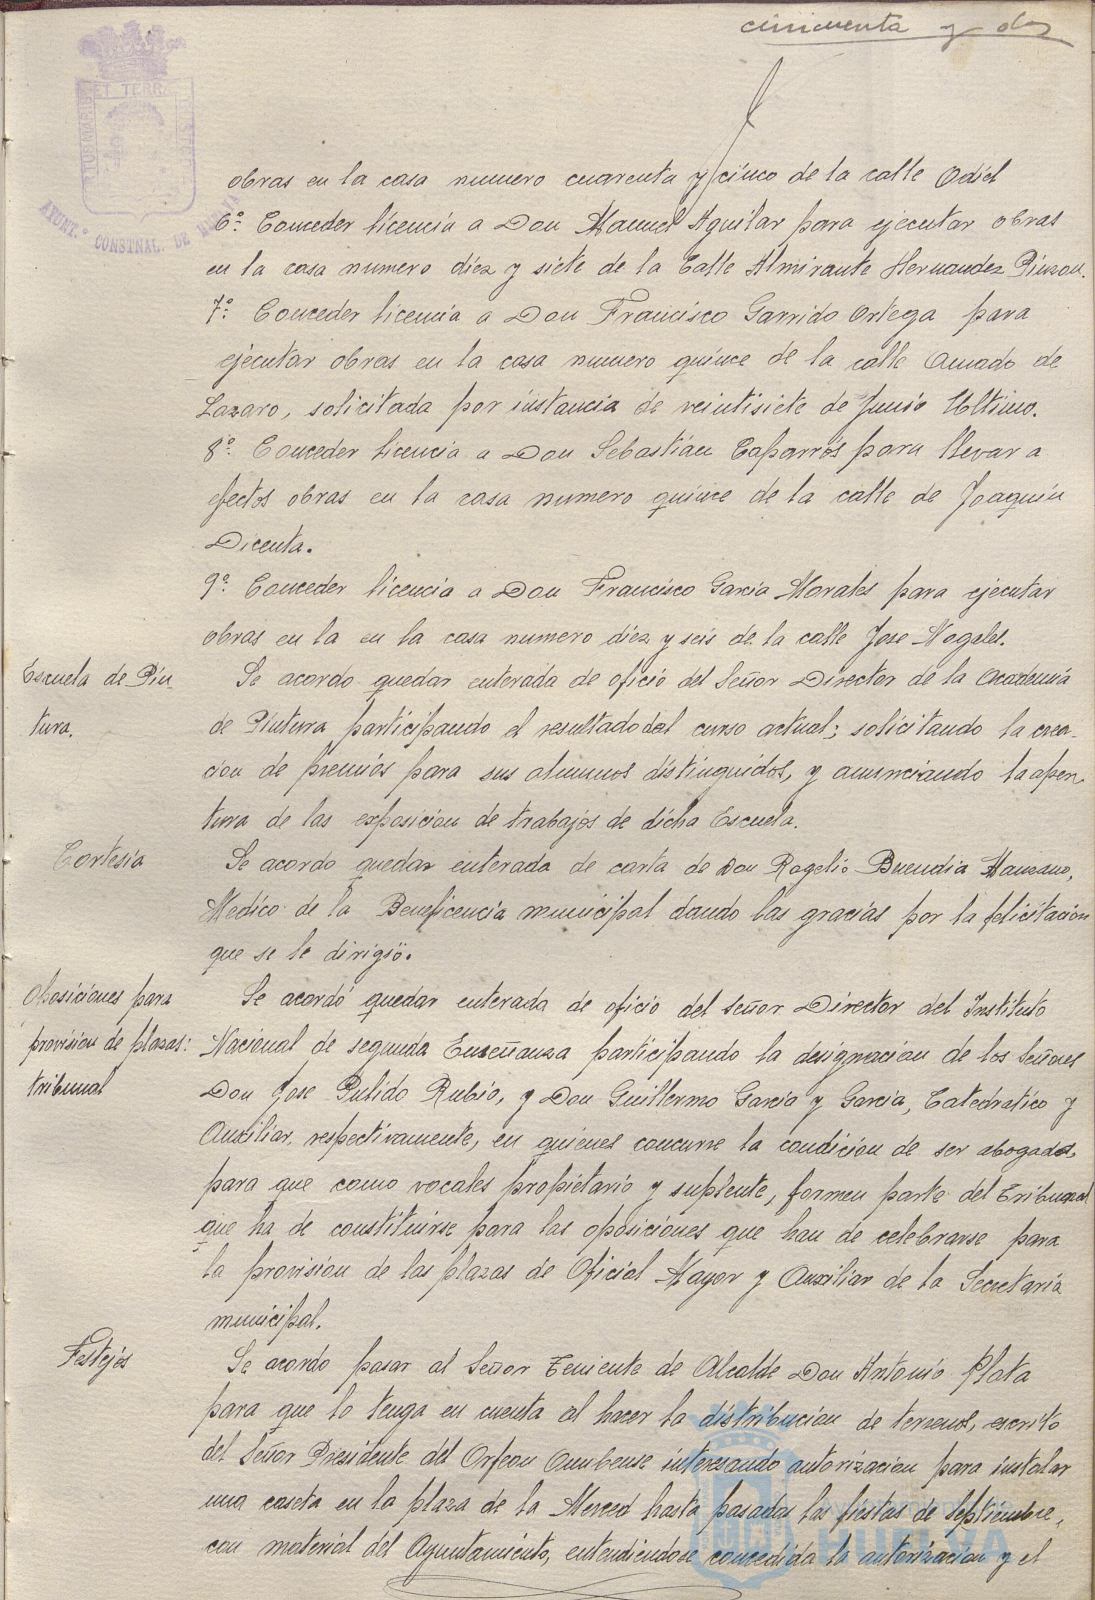 cincuenta y dos
ET TERRA
AYUNT.º CONSTNAL. DE HUELVA
obras en la casa numero cuarenta y cinco de la calle Odiel
6º. Conceder licencia a Don Manuel Aguilar para ejecutar obras
en la casa numero diez y siete de la Calle Almirante Hernandez Pinzon.
7º. Conceder licencia a Don Francisco Garrido Ortega para
ejecutar obras en la casa numero quince de la calle Amado de
Lazaro, solicitada por instancia de veintisiete de Junio Ultimo.
8º. Conceder licencia a Don Sebastián Caparrós para llevar a
efectos obras en la casa numero quince de la calle de Joaquin
Dicenta.
9º. Conceder licencia a Don Francisco Garcia Morales para ejecutar
obras en la en la casa numero diez y seis de la calle Jose Nogales.
Escuela de Pin-
tura.
Se acordo quedar enterada de oficio del Señor Director de la Academia
de Pinturra participando el resultado del curso actual; solicitando la crea-
cion de premios para sus alumnos distinguidos, y anunciando la aper-
tura de las exposicion de trabajos de dicha Escuela.
Cortesia
Se acordo quedar enterada de carta de Don Rogelio Buendia Manzano,
Medico de la Beneficencia municipal dando las gracias por la felicitacion
que se le dirigió.
Oposiciones para
provision de plazas:
tribunal
Se acordó quedar enterada de oficio del Señor Director del Instituto
Nacional de segunda Enseñanza participando la designacion de los Señores
Don Jose Pulido Rubio, y Don Guillermo Garcia y Garcia, Catedratico y
Auxiliar, respectivamente, en quienes concurre la condicion de ser abogados,
para que como vocales propietario y suplente, formen parte del Tribunal
que ha de constituirse para las oposiciones que han de celebrarse para
la provision de las plazas de Oficial Mayor y Auxiliar de la Secretaria
municipal.
Festejos
Se acordo pasar al Señor Teniente de Alcalde Don Antonio Plata
para que lo tenga en cuenta al hacer la distribucion de terrenos, escrito
del Señor Presidente del Orfeon Onubense interesando autorizacion para instalar
una caseta en la plaza de la Merced hasta pasadas las fiestas de Septiembre,
con material del Ayuntamiento, entendiendose concedida la autorizacion y el
Ayuntamiento de
HUELVA